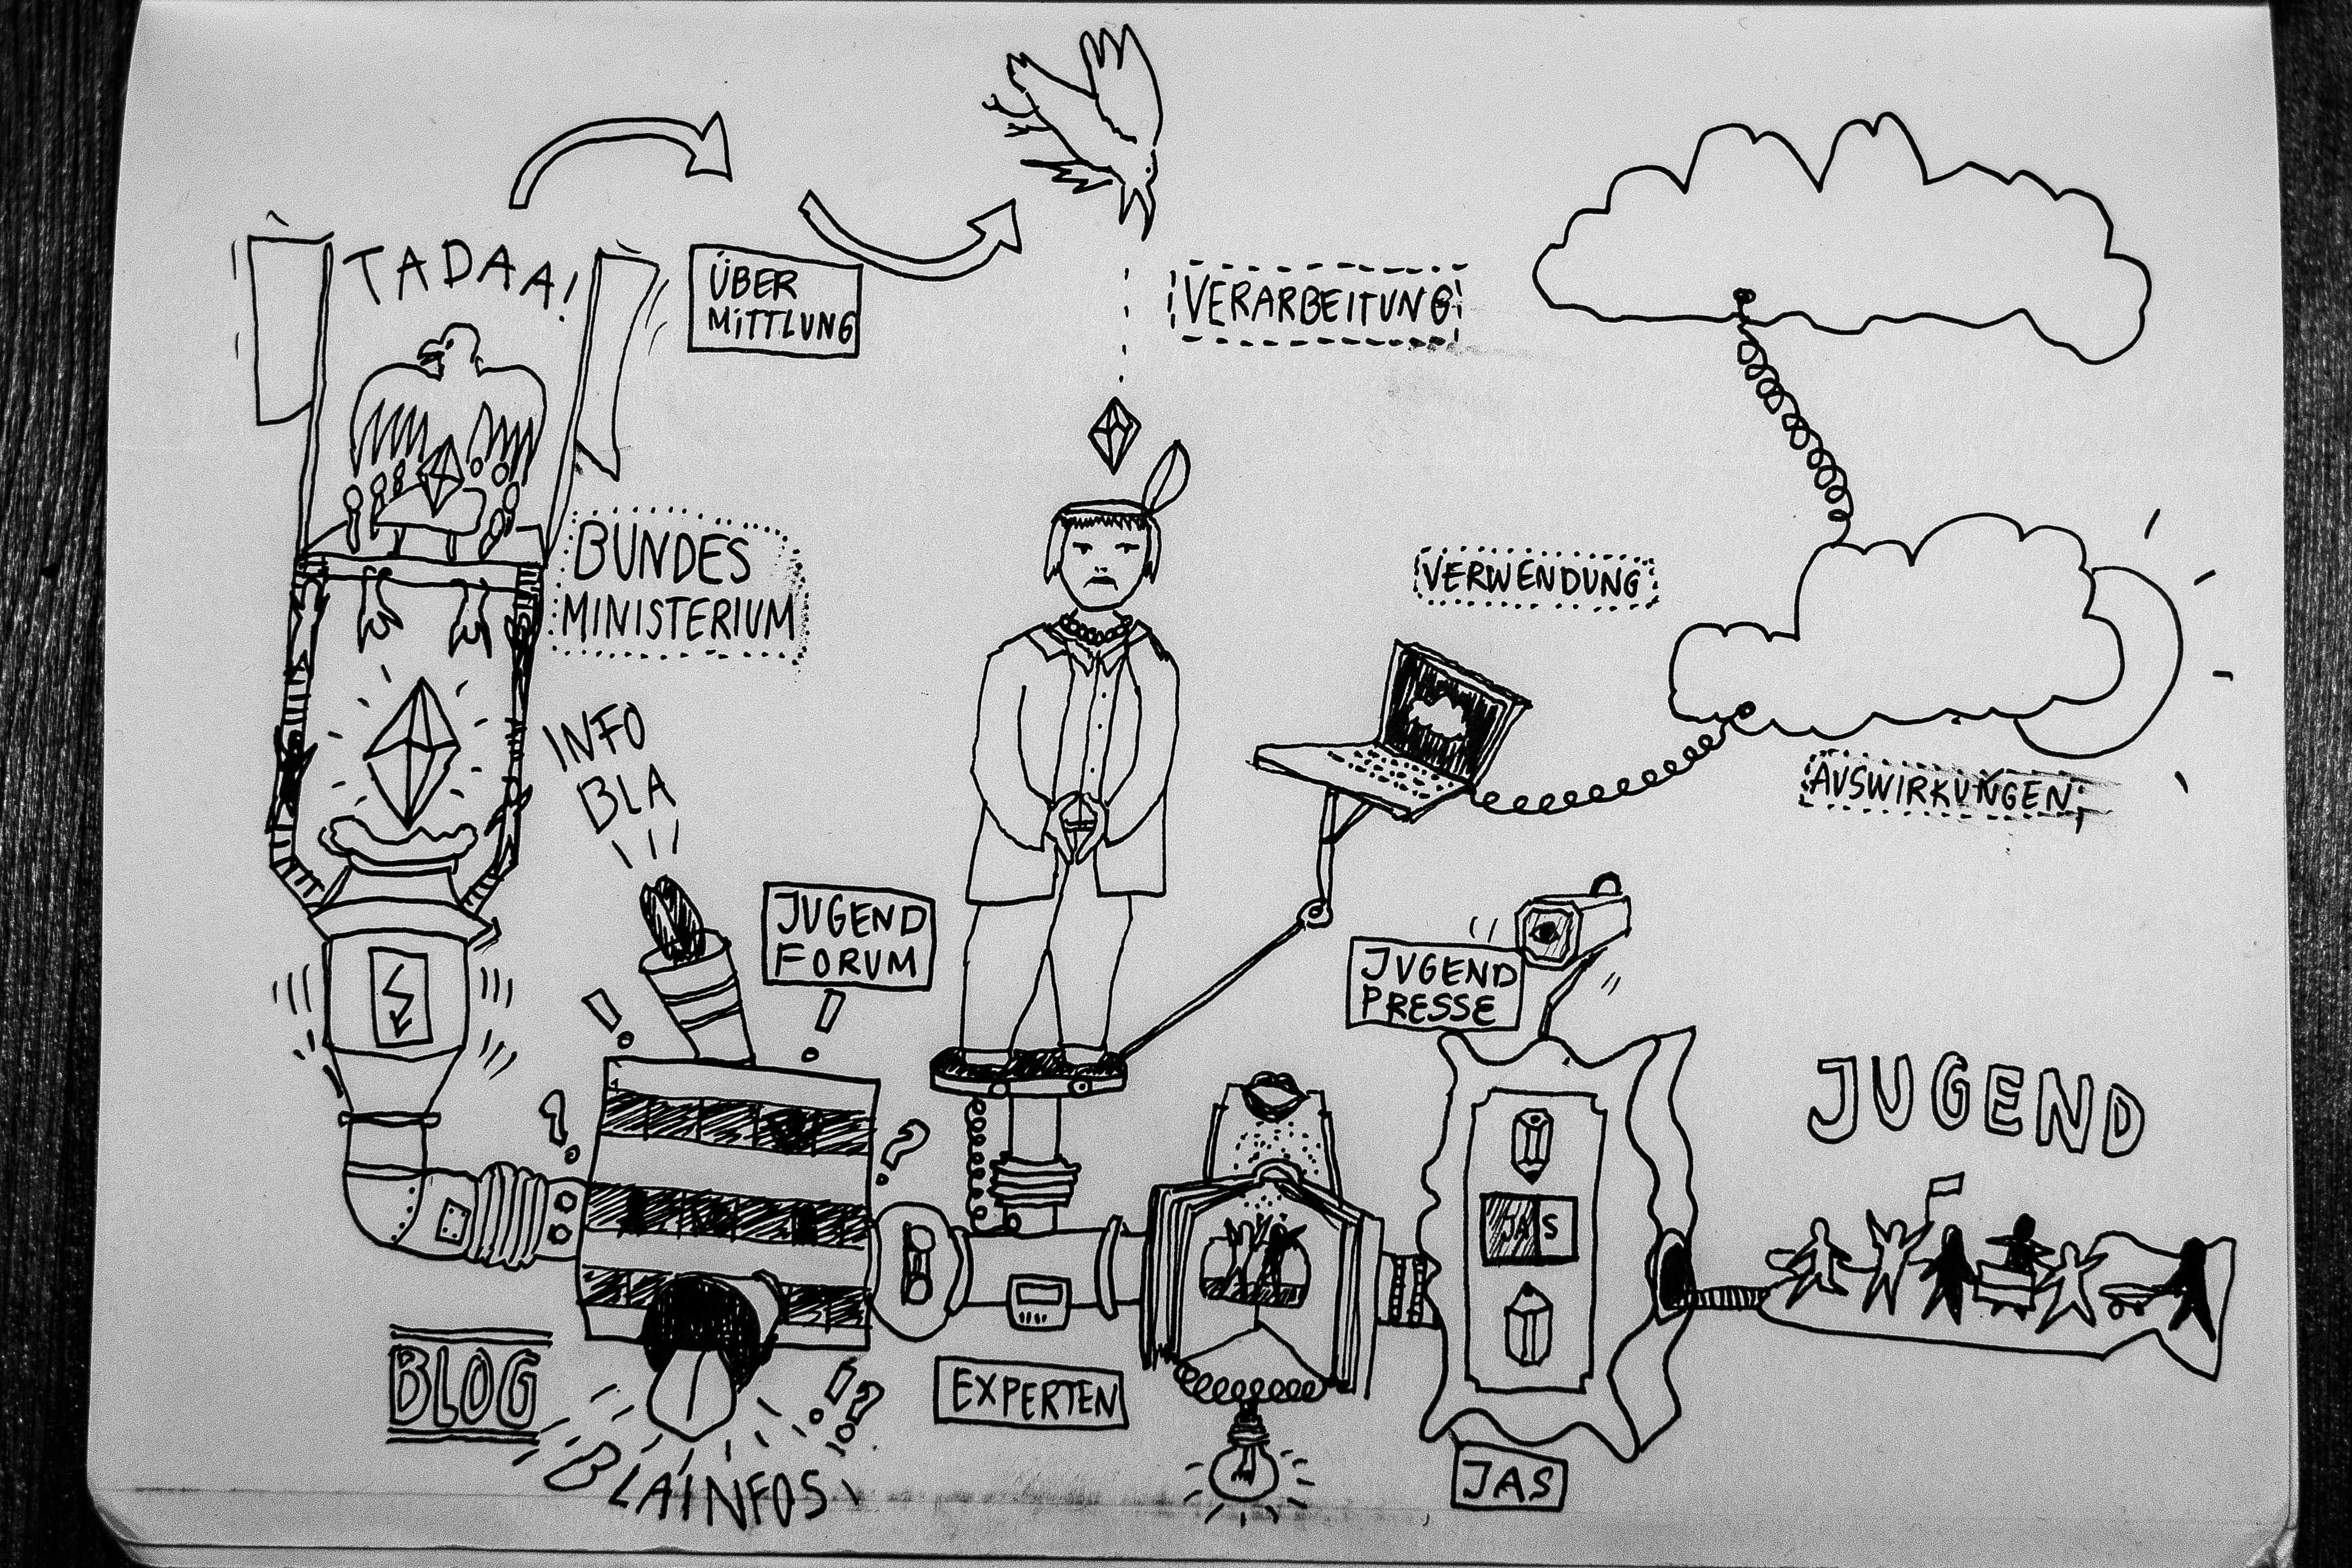 TADAA!
ÜBER
MITTLUNG
VERARBEITUNG
BUNDES
MINISTERIUM
VERWENDUNG
INFO
BLA
AUSWIRKUNGEN
JUGEND
FORUM
JUGEND
PRESSE
JUGEND
JAS
BLOG
EXPERTEN
BLAINFOS
JAS